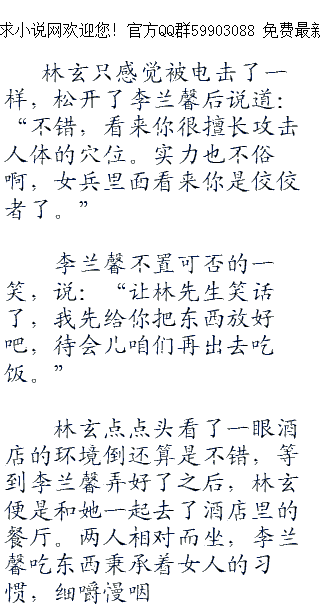 求小说网欢迎您！官方QQ群59903088 免费最新
林玄只感觉被电击了一
样，松开了李兰馨后说道：
“不错，看来你很擅长攻击
人体的穴位。实力也不俗
啊，女兵里面看来你是佼佼
者了。”
李兰馨不置可否的一
笑，说：“让林先生笑话
了，我先给你把东西放好
吧，待会儿咱们再出去吃
饭。”
林玄点点头看了一眼酒
店的环境倒还算是不错，等
到李兰馨弄好了之后，林玄
便是和她一起去了酒店里的
餐厅。两人相对而坐，李兰
馨吃东西秉承着女人的习
惯，细嚼漫咽